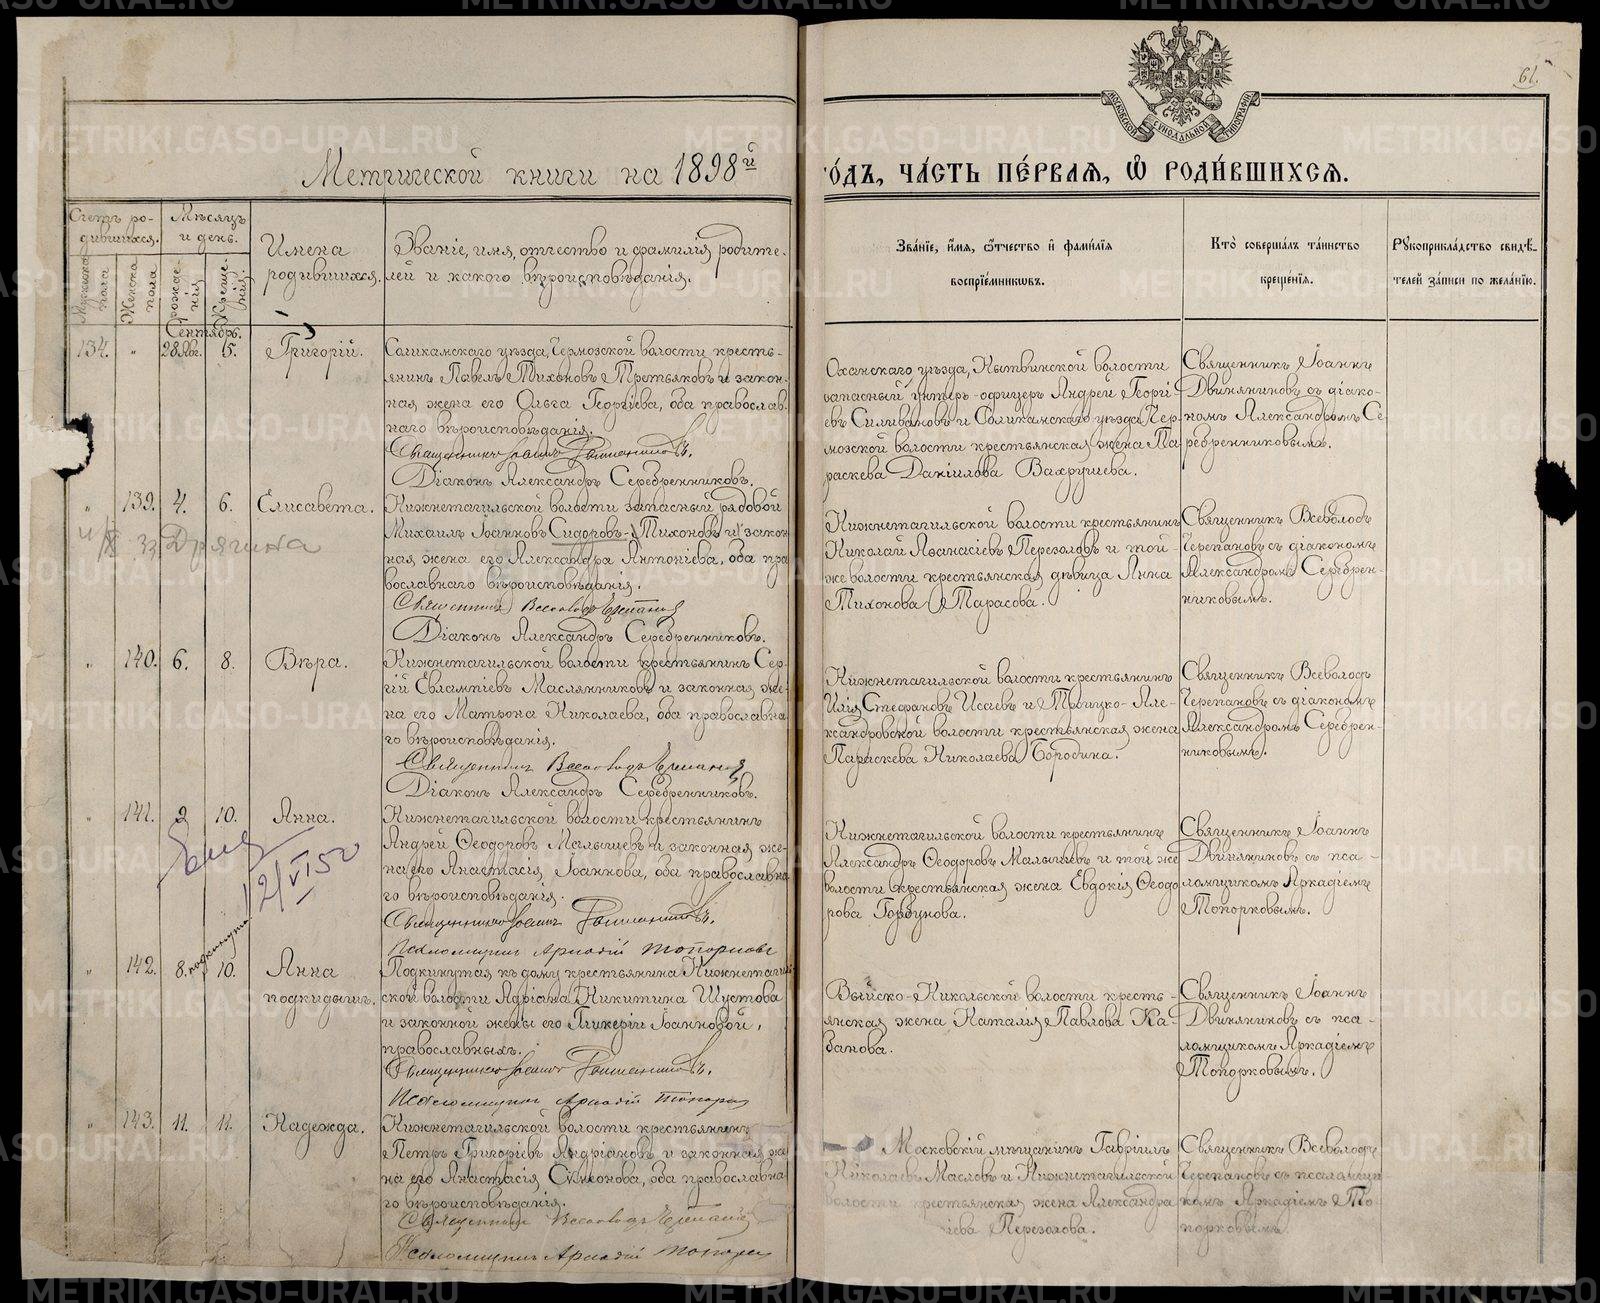 61.
МОСКОВСКОЙ СѴНОДАЛЬНОЙ ТИПОГРАФІИ
Метрической книги на 1898й
ГОДЪ, ЧАСТЬ ПЕРВАЯ, Ѡ РОДИВШИХСЯ.
Счетъ ро-
дившихся.
Мужеска пола
Женска пола
Мѣсяцъ
и день.
рожде-
нія
Креще-
нія.
Имена
родившихся.
Званіе, имя, отчество и фамилія родите-
лей и какого вѣроисповѣданія.
Званїе, имя, ѿчество и фамилїя
воспрїемникωвъ.
Кто совершалъ таинство
крещенїя.
Рукоприкладство свидѣ-
телей записи по желанїю.
Сентябрь.
134. " 28 Авг. 5. Григорій.
Соликамскаго уѣзда, Чермозской волости кресть-
янинъ Павелъ Тихоновъ Третьяковъ и закон-
ная жена его Ольга Георгіева, оба православ-
наго вѣроисповѣданія.
Священникъ Іоаннъ Двиняниновъ.
Діаконъ Александръ Серебренниковъ.
Оханскаго уѣзда, Нытвинской волости
запасный унтеръ-офицеръ Андрей Георгі-
евъ Селивановъ и Соликамскаго уѣзда, Чер-
мозской волости крестьянская жена Па-
раскева Даніилова Вахрушева.
Священникъ Іоаннъ
Двиняниновъ съ діако-
номъ Александромъ Се-
ребренниковымъ.
" 139. 4. 6. Елисавета.
Дрягина
Нижнетагильской волости запасный рядовой
Михаилъ Іоанновъ Сидоровъ-Тихоновъ и закон-
ная жена его Александра Антоніева, оба пра-
вославнаго вѣроисповѣданія.
Священникъ Всеволодъ Черепановъ
Діаконъ Александръ Серебренниковъ.
Нижнетагильской волости крестьянинъ
Николай Аѳанасіевъ Перезоловъ и той-
же волости крестьянская дѣвица Анна
Тихонова Тарасова.
Священникъ Всеволодъ
Черепановъ съ діакономъ
Александромъ Серебрен-
никовымъ.
" 140. 6. 8. Вѣра.
Нижнетагильской волости крестьянинъ Сер-
гій Евлампіевъ Маслянниковъ и законная же-
на его Матрона Николаева, оба православна-
го вѣроисповѣданія.
Священникъ Всеволодъ Черепановъ
Діаконъ Александръ Серебренниковъ.
Нижнетагильской волости крестьянинъ
Илія Стефановъ Исаевъ и Троицко-Але-
ксандровской волости крестьянская жена
Параскева Николаева Бородина.
Священникъ Всеволодъ
Черепановъ съ діакономъ
Александромъ Серебрен-
никовымъ.
" 141. 2 10. Анна.
12/VI 50
Нижнетагильской волости крестьянинъ
Андрей Ѳеодоровъ Малышевъ и законная же-
на его Анастасія Іоаннова, оба православна-
го вѣроисповѣданія.
Священникъ Іоаннъ Двиняниновъ.
Псаломщикъ Аркадій Топорковъ
Нижнетагильской волости крестьянинъ
Александръ Ѳеодоровъ Малышевъ и той же
волости крестьянская жена Евдокія Ѳеодо-
рова Горбунова.
Священникъ Іоаннъ
Двиняниновъ съ пса-
ломщикомъ Аркадіемъ
Топорковымъ.
" 142. 8. подкинута 10. Анна
подкидышъ.
Подкинутая къ дому крестьянина Нижнетагиль-
ской волости Адріана Никитина Шустова
и законной жены его Гликеріи Іоанновой,
православныхъ.
Священникъ Іоаннъ Двиняниновъ.
Псаломщикъ Аркадій Топорковъ
Выйско-Никольской волости кресть-
янская жена Наталія Павлова Ка-
банова.
Священникъ Іоаннъ
Двиняниновъ съ пса-
ломщикомъ Аркадіемъ
Топорковымъ.
" 143. 11. 11. Надежда.
Нижнетагильской волости крестьянинъ
Петръ Григоріевъ Андріановъ и законная же-
на его Анастасія Симонова, оба православна-
го вѣроисповѣданія.
Священникъ Всеволодъ Черепановъ
Псаломщикъ Аркадій Топорковъ
Московскій мѣщанинъ Гавріилъ
Николаевъ Масловъ и Нижнетагильской
волости крестьянская жена Александра
Перезолова.
Священникъ Всеволодъ
Черепановъ съ псаломщи-
комъ Аркадіемъ То-
порковымъ.
METRIKI.GASO-URAL.RU